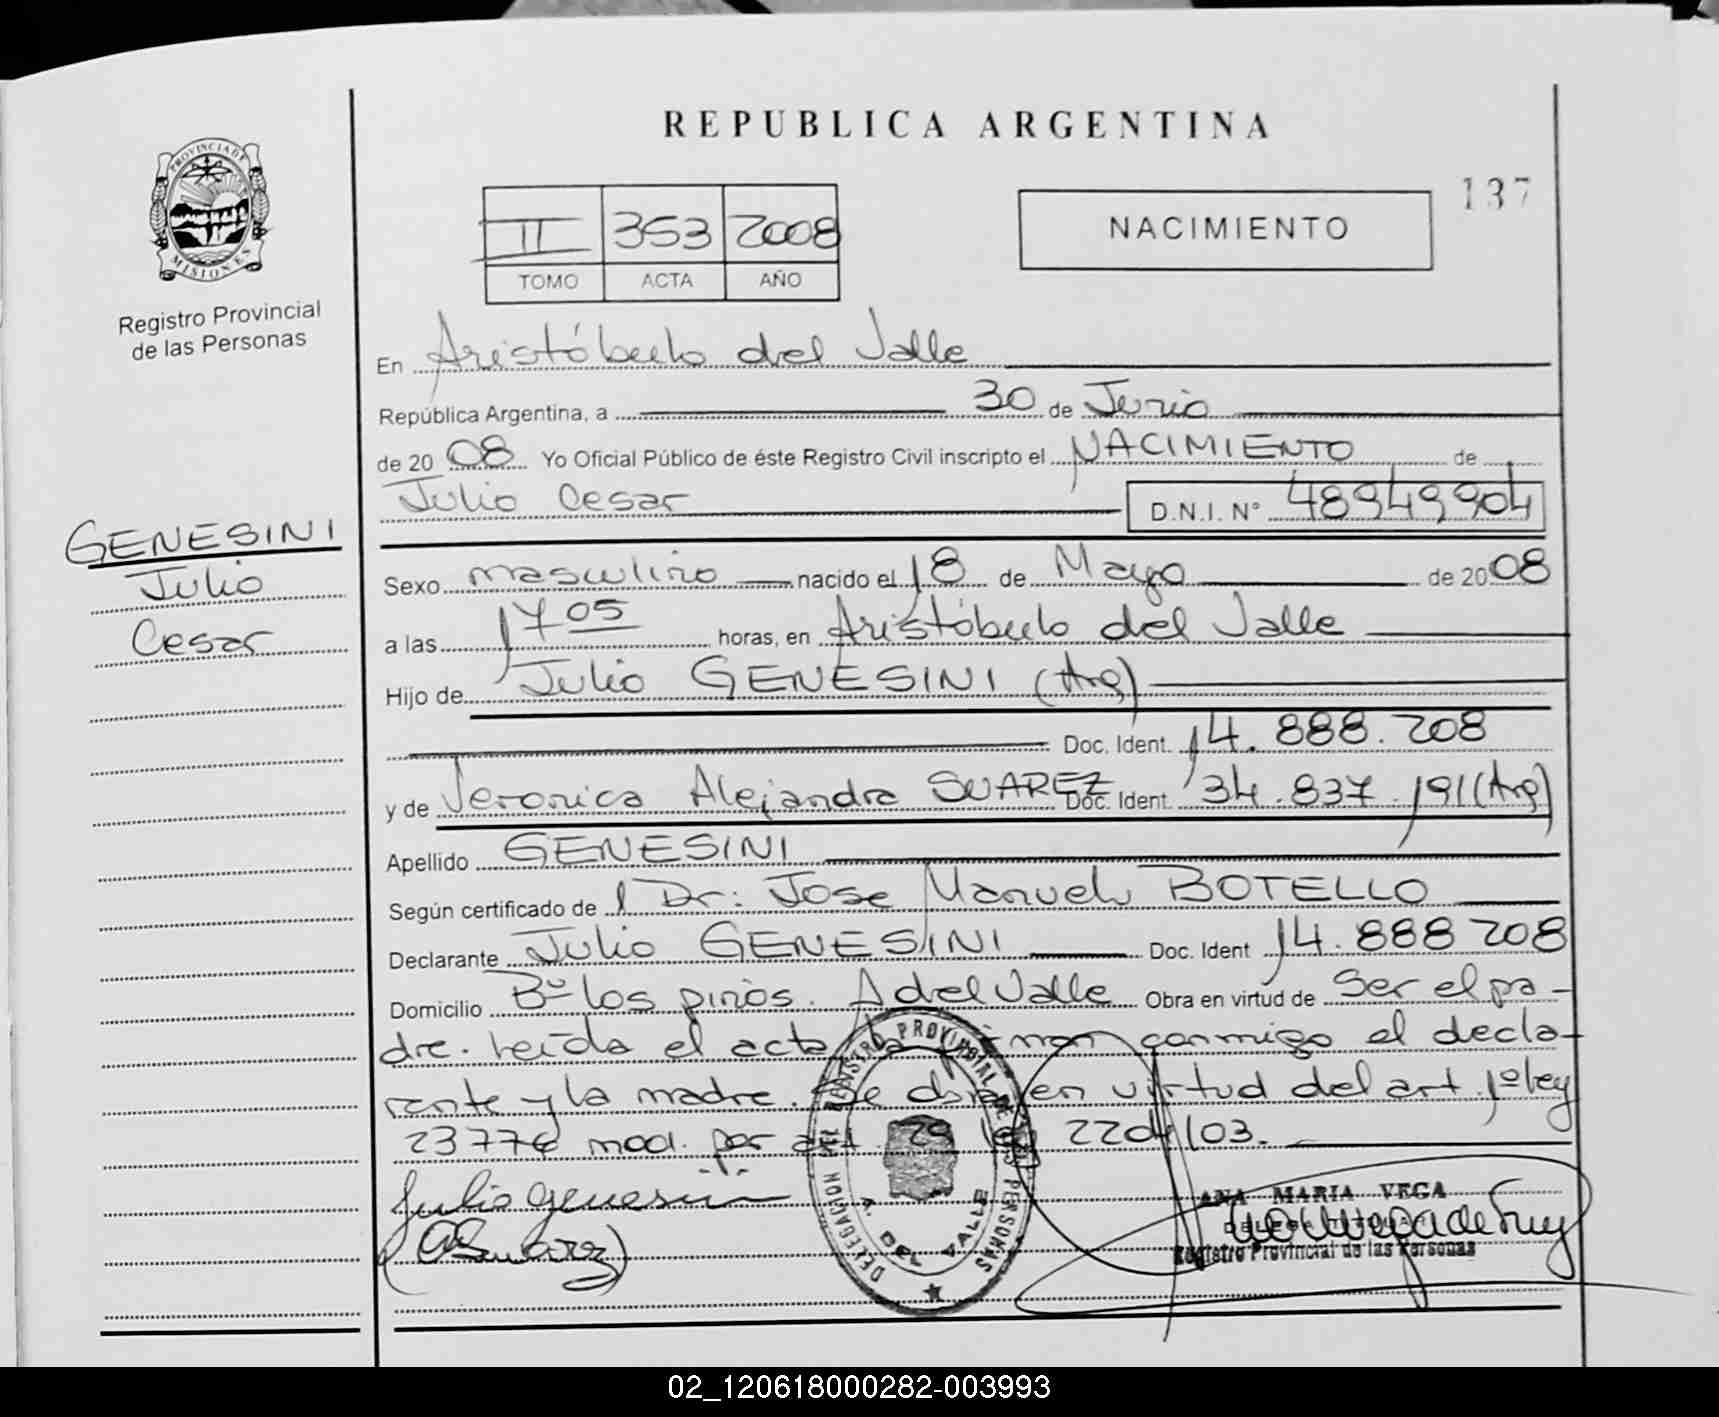 REPUBLICA ARGENTINA
137
II 353 2008
TOMO ACTA AÑO
NACIMIENTO
PROVINCIA DE MISIONES
Registro Provincial
de las Personas
GENESINI
Julio
Cesar
En Aristóbulo del Valle
República Argentina, a 30 de Junio
de 2008 Yo Oficial Público de éste Registro Civil inscripto el NACIMIENTO de
Julio Cesar D.N.I. N° 48949904
Sexo masculino nacido el 18 de Mayo de 2008
a las 17 05 horas, en Aristóbulo del Valle
Hijo de Julio GENESINI (Arg)
Doc. Ident. 14.888.208
y de Veronica Alejandra SUAREZ Doc. Ident. 34.837.191 (Arg)
Apellido GENESINI
Según certificado de l Dr: Jose Manuel BOTELLO
Declarante Julio GENESINI Doc. Ident 14.888 208
Domicilio Bº los pinos. A del Valle Obra en virtud de Ser el pa-
dre. leida el acta la firman conmigo el decla-
rante y la madre. Se obra en virtud del art. 1º ley
23776 mod. por art. 29 ley 2204/03.
Julio Genesini
DELEGACION DEL REGISTRO PROVINCIAL DE LAS PERSONAS
A. DEL VALLE
ANA MARIA VEGA
Registro Provincial de las Personas
02_120618000282-003993